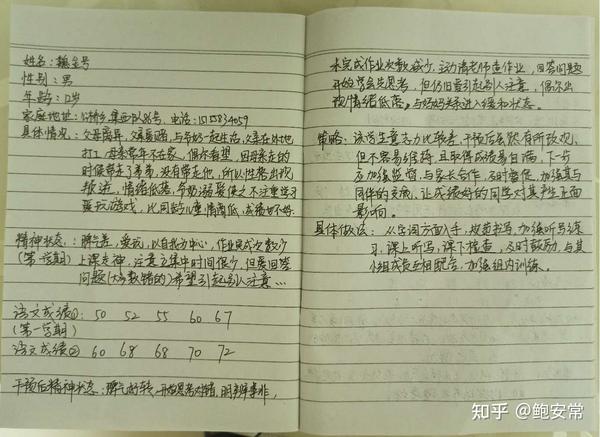 姓名:
性别:男
年龄:12岁
家庭地址: 电话:
具体情况:父母离异,父亲再婚,与奶奶一起生活,父亲在外地
打工,母亲常年不在家,偶尔看望,因母亲走的
时候带走了弟弟,没有带走他,所以性格出现
叛逆,情绪低落,爷奶溺爱使之不注重学习
爱玩游戏,比同龄儿童情商低,成绩也不好.
精神状态:脾气差,爱玩,以自我为中心,作业完成次数少
(第一学期)上课走神,注意力集中时间很少,但爱回答
问题(大多数错的)希望引起别人注意...
语文成绩①: 50 52 55 60 67
(第一学期)
语文成绩② 60 68 68 70 72
干预后精神状态:脾气好转,开始思考对错,明辨是非,
未完成作业次数减少,主动请老师查作业,回答问题
开始学会先思考,但仍旧喜引起别人注意,偶尔出
现情绪低落,与奶奶关系进入缓和状态。
策略:该学生意志力比较差,干预后虽然有所改观,
但不容易维持,且取得成绩易自满,下一步
应加强监督,与家长合作,及时督促,加强其与
同伴的交流,让成绩好的同学对其产生正面
影响。
具体做法:从字词方面入手,规范书写,加强听写练
习,课上听写,课下检查,及时鼓励,与其
小组成员互相配合,加强组内训练。
知乎 @鲍安常